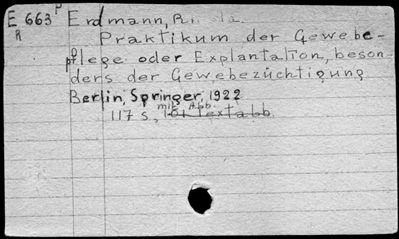 E 663 P Erdmann,
R
Praktikum der Gewebe-
pflege oder Explantation, beson-
ders der Gewebezüchtigung
Berlin, Springer, 1922
mit Abb.
117 s, 101 Textabb.